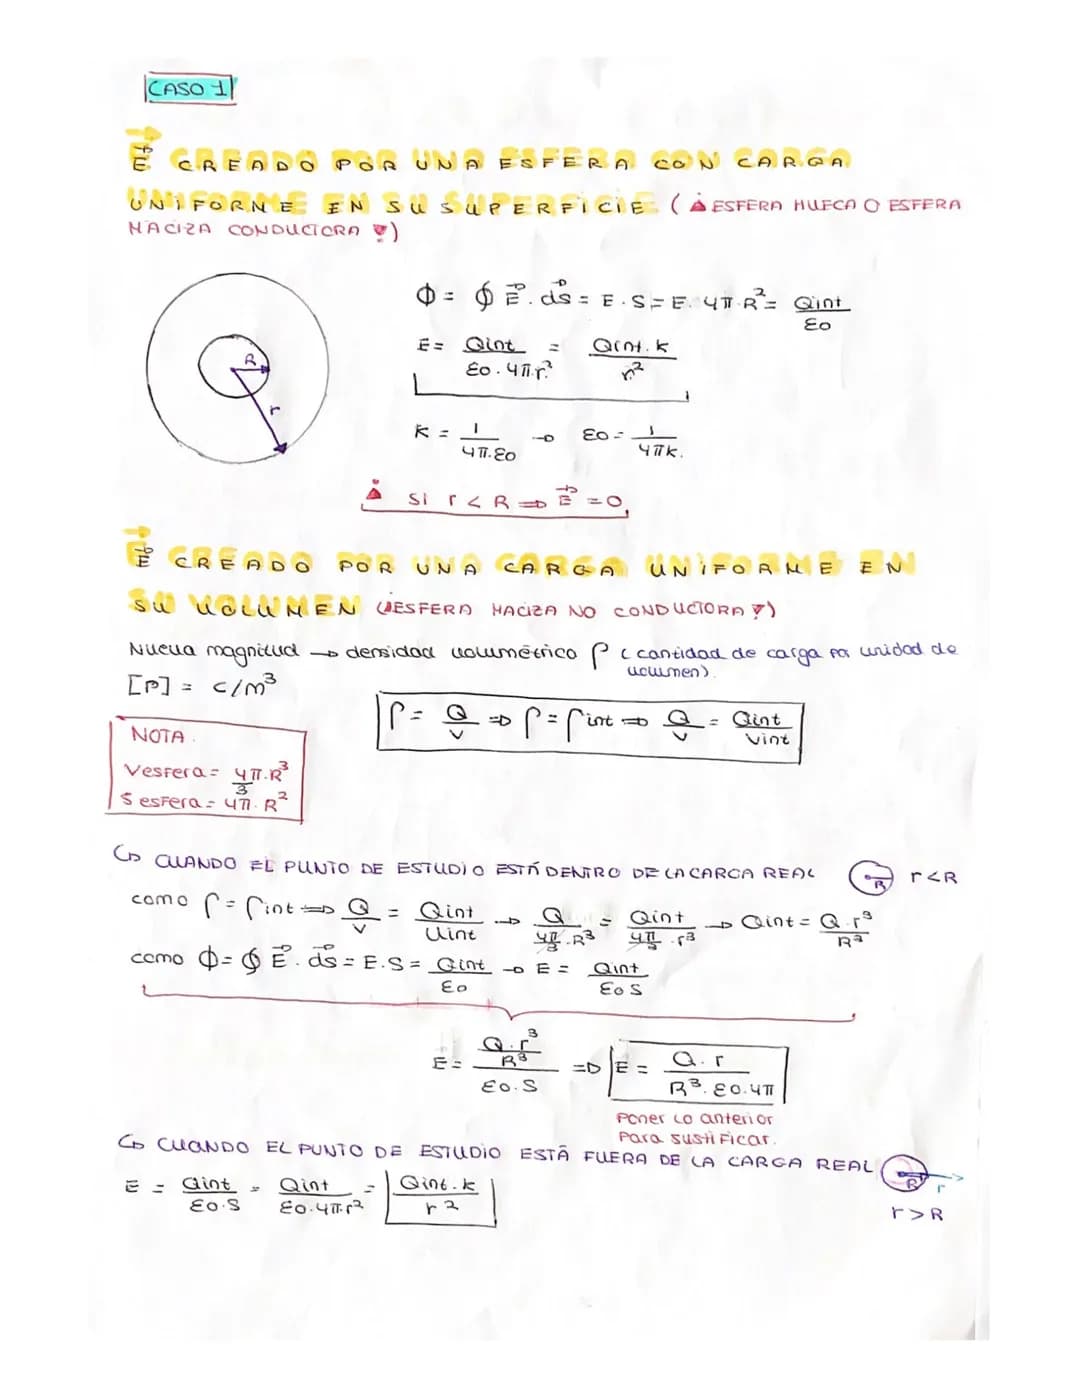 CASO 1
E⃗ CREADO POR UNA ESFERA CON CARGA
UNIFORME EN SU SUPERFICIE (¡ESFERA HUECA O ESFERA
MACIZA CONDUCTORA!)
R
r
Φ = ∮ E⃗ . ds⃗ = E . S = E . 4π . R² = Qint / εo
E = Qint / εo . 4π . r² = Qint . k / r²
K = 1 / 4π . εo → εo = 1 / 4πk.
¡ Si r < R ⇒ E⃗ = 0,
E⃗ CREADO POR UNA CARGA UNIFORME EN
SU VOLUMEN (¡ESFERA MACIZA NO CONDUCTORA!)
Nueva magnitud → densidad volumétrico ρ (cantidad de carga por unidad de
volumen).
[ρ] = C/m³
ρ = Q / V ⇒ ρ = ρint ⇒ Q / V = Qint / Vint
NOTA.
Vesfera = 4π . R³ / 3
S esfera = 4π . R²
↳ CUANDO EL PUNTO DE ESTUDIO ESTÁ DENTRO DE LA CARGA REAL
R
r < R
como ρ = ρint ⇒ Q / V = Qint / Vint → Q / 4π/3 . R³ = Qint / 4π/3 . r³ → Qint = Q . r³ / R³
como Φ = ∮ E⃗ . ds⃗ = E . S = Qint / εo → E = Qint / εo S
E = Q . r³ / R³ / εo . S ⇒ E = Q . r / R³ . εo . 4π
Poner lo anterior
Para sustificar.
↳ CUANDO EL PUNTO DE ESTUDIO ESTÁ FUERA DE LA CARGA REAL
R
r
E = Qint / εo . S = Qint / εo . 4π . r² = Qint . k / r²
r > R